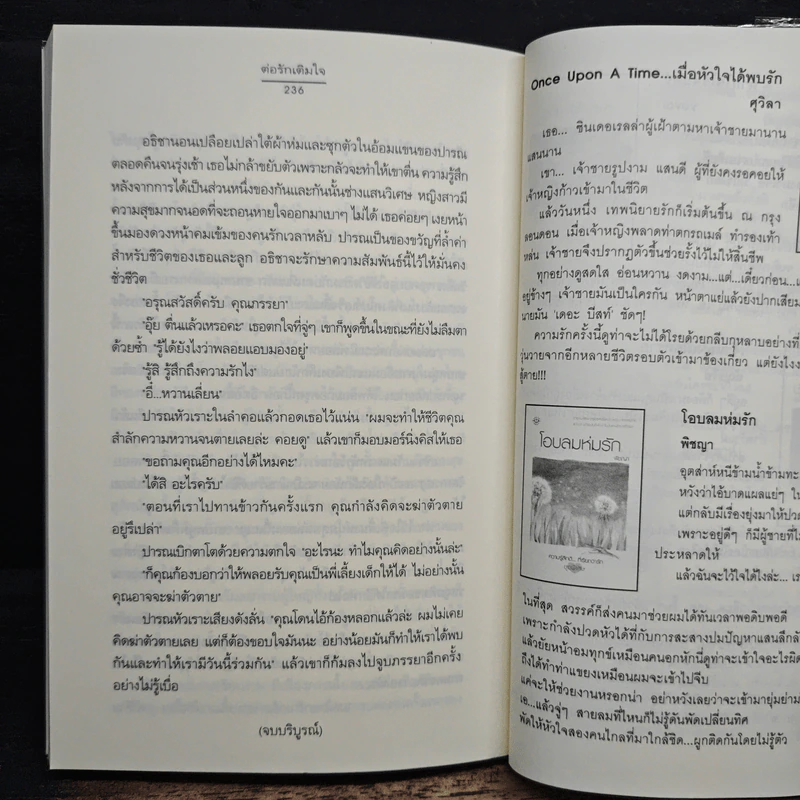 ต่อรักเติมใจ
236
อธิชานอนเปลือยเปล่าใต้ผ้าห่มและซุกตัวในอ้อมแขนของปารณ
ตลอดคืนจนรุ่งเช้า เธอไม่กล้าขยับตัวเพราะกลัวจะทำให้เขาตื่น ความรู้สึก
หลังจากการได้เป็นส่วนหนึ่งของกันและกันนั้นช่างแสนวิเศษ หญิงสาวมี
ความสุขมากจนอดที่จะถอนหายใจออกมาเบาๆ ไม่ได้ เธอค่อยๆ เงยหน้า
ขึ้นมองดวงหน้าคมเข้มของคนรักเวลาหลับ ปารณเป็นของขวัญที่ล้ำค่า
สำหรับชีวิตของเธอและลูก อธิชาจะรักษาความสัมพันธ์นี้ไว้ให้มั่นคง
ชั่วชีวิต
"อรุณสวัสดิ์ครับ คุณภรรยา"
"อุ๊ย ตื่นแล้วเหรอคะ" เธอตกใจที่จู่ๆ เขาก็พูดขึ้นในขณะที่ยังไม่ลืมตา
ด้วยซ้ำ "รู้ได้ยังไงว่าพลอยแอบมองอยู่"
"รู้สิ รู้สึกถึงความรักไง"
"อี๋...หวานเลี่ยน"
ปารณหัวเราะในลำคอแล้วกอดเธอไว้แน่น "ผมจะทำให้ชีวิตคุณ
สำลักความหวานจนตายเลยล่ะ คอยดู" แล้วเขาก็มอบมอร์นิ่งคิสให้เธอ
"ขอถามคุณอีกอย่างได้ไหมคะ"
"ได้สิ อะไรครับ"
"ตอนที่เราไปทานข้าวกันครั้งแรก คุณกำลังคิดจะฆ่าตัวตาย
อยู่รึเปล่า"
ปารณเบิกตาโตด้วยความตกใจ "อะไรนะ ทำไมคุณคิดอย่างนั้นล่ะ"
"ก็คุณก้องบอกว่าให้พลอยรับคุณเป็นพี่เลี้ยงเด็กให้ได้ ไม่อย่างนั้น
คุณอาจจะฆ่าตัวตาย"
ปารณหัวเราะเสียงดังลั่น "คุณโดนไอ้ก้องหลอกแล้วล่ะ ผมไม่เคย
คิดฆ่าตัวตายเลย แต่ก็ต้องขอบใจมันนะ อย่างน้อยมันก็ทำให้เราได้พบ
กันและทำให้เรามีวันนี้ร่วมกัน" แล้วเขาก็ก้มลงไปจูบภรรยาอีกครั้ง
อย่างไม่รู้เบื่อ
(จบบริบูรณ์)
Once Upon A Time...เมื่อหัวใจได้พบรัก
ศุวิลา
เธอ... ซินเดอเรลล่าผู้เฝ้าตามหาเจ้าชายมานาน
แสนนาน
เขา... เจ้าชายรูปงาม แสนดี ผู้ที่ยังคงรอคอยให้
เจ้าหญิงก้าวเข้ามาในชีวิต
แล้ววันหนึ่ง เทพนิยายรักก็เริ่มต้นขึ้น ณ กรุง
ลอนดอน เมื่อเจ้าหญิงพลาดท่าตกรถเมล์ ทำรองเท้า
หล่น เจ้าชายจึงปรากฏตัวขึ้นช่วยรั้งไว้ไม่ให้สิ้นชีพ
ทุกอย่างดูสดใส อ่อนหวาน งดงาม...แต่...เดี๋ยวก่อน...
อยู่ข้างๆ เจ้าชายมันเป็นใครกัน หน้าตาแย่แล้วยังปากเสีย
นายมัน 'เดอะ บีสท์' ชัดๆ!
ความรักครั้งนี้ดูท่าจะไม่ได้โรยด้วยกลีบกุหลาบอย่างที่
วุ่นวายจากอีกหลายชีวิตรอบตัวเข้ามาข้องเกี่ยว แต่ยังไง
สู้ตาย!!!
โอบลมห่มรัก
โอบลมห่มรัก
พิชญา
อุตส่าห์หนีข้ามน้ำข้ามทะ
หวังว่าไอ้บาดแผลแย่ๆ
แต่กลับมีเรื่องยุ่งมาให้ปวด
เพราะอยู่ดีๆ ก็มีผู้ชายที่
ประหลาดให้
แล้วฉันจะไว้ใจได้ไงล่ะ...
ในที่สุด สวรรค์ก็ส่งคนมาช่วยผมได้ทันเวลาพอดิบพอดี
เพราะกำลังปวดหัวได้ที่กับการสะสางปมปัญหาแสนลึกลับ
แล้วยัยหน้าอมทุกข์เหมือนคนอกหักนี่ดูท่าจะเข้าใจอะไรผิด
ถึงได้ทำท่าแขยงเหมือนผมจะเข้าไปจีบ
แค่จะให้ช่วยงานหรอกน่า อย่าหวังเลยว่าจะเข้ามายุ่มย่าม
เอ...แล้วจู่ๆ สายลมที่ไหนก็ไม่รู้ดันพัดเปลี่ยนทิศ
พัดให้หัวใจสองคนใกล้ที่มาใกล้ชิด...ผูกติดกันโดยไม่รู้ตัว